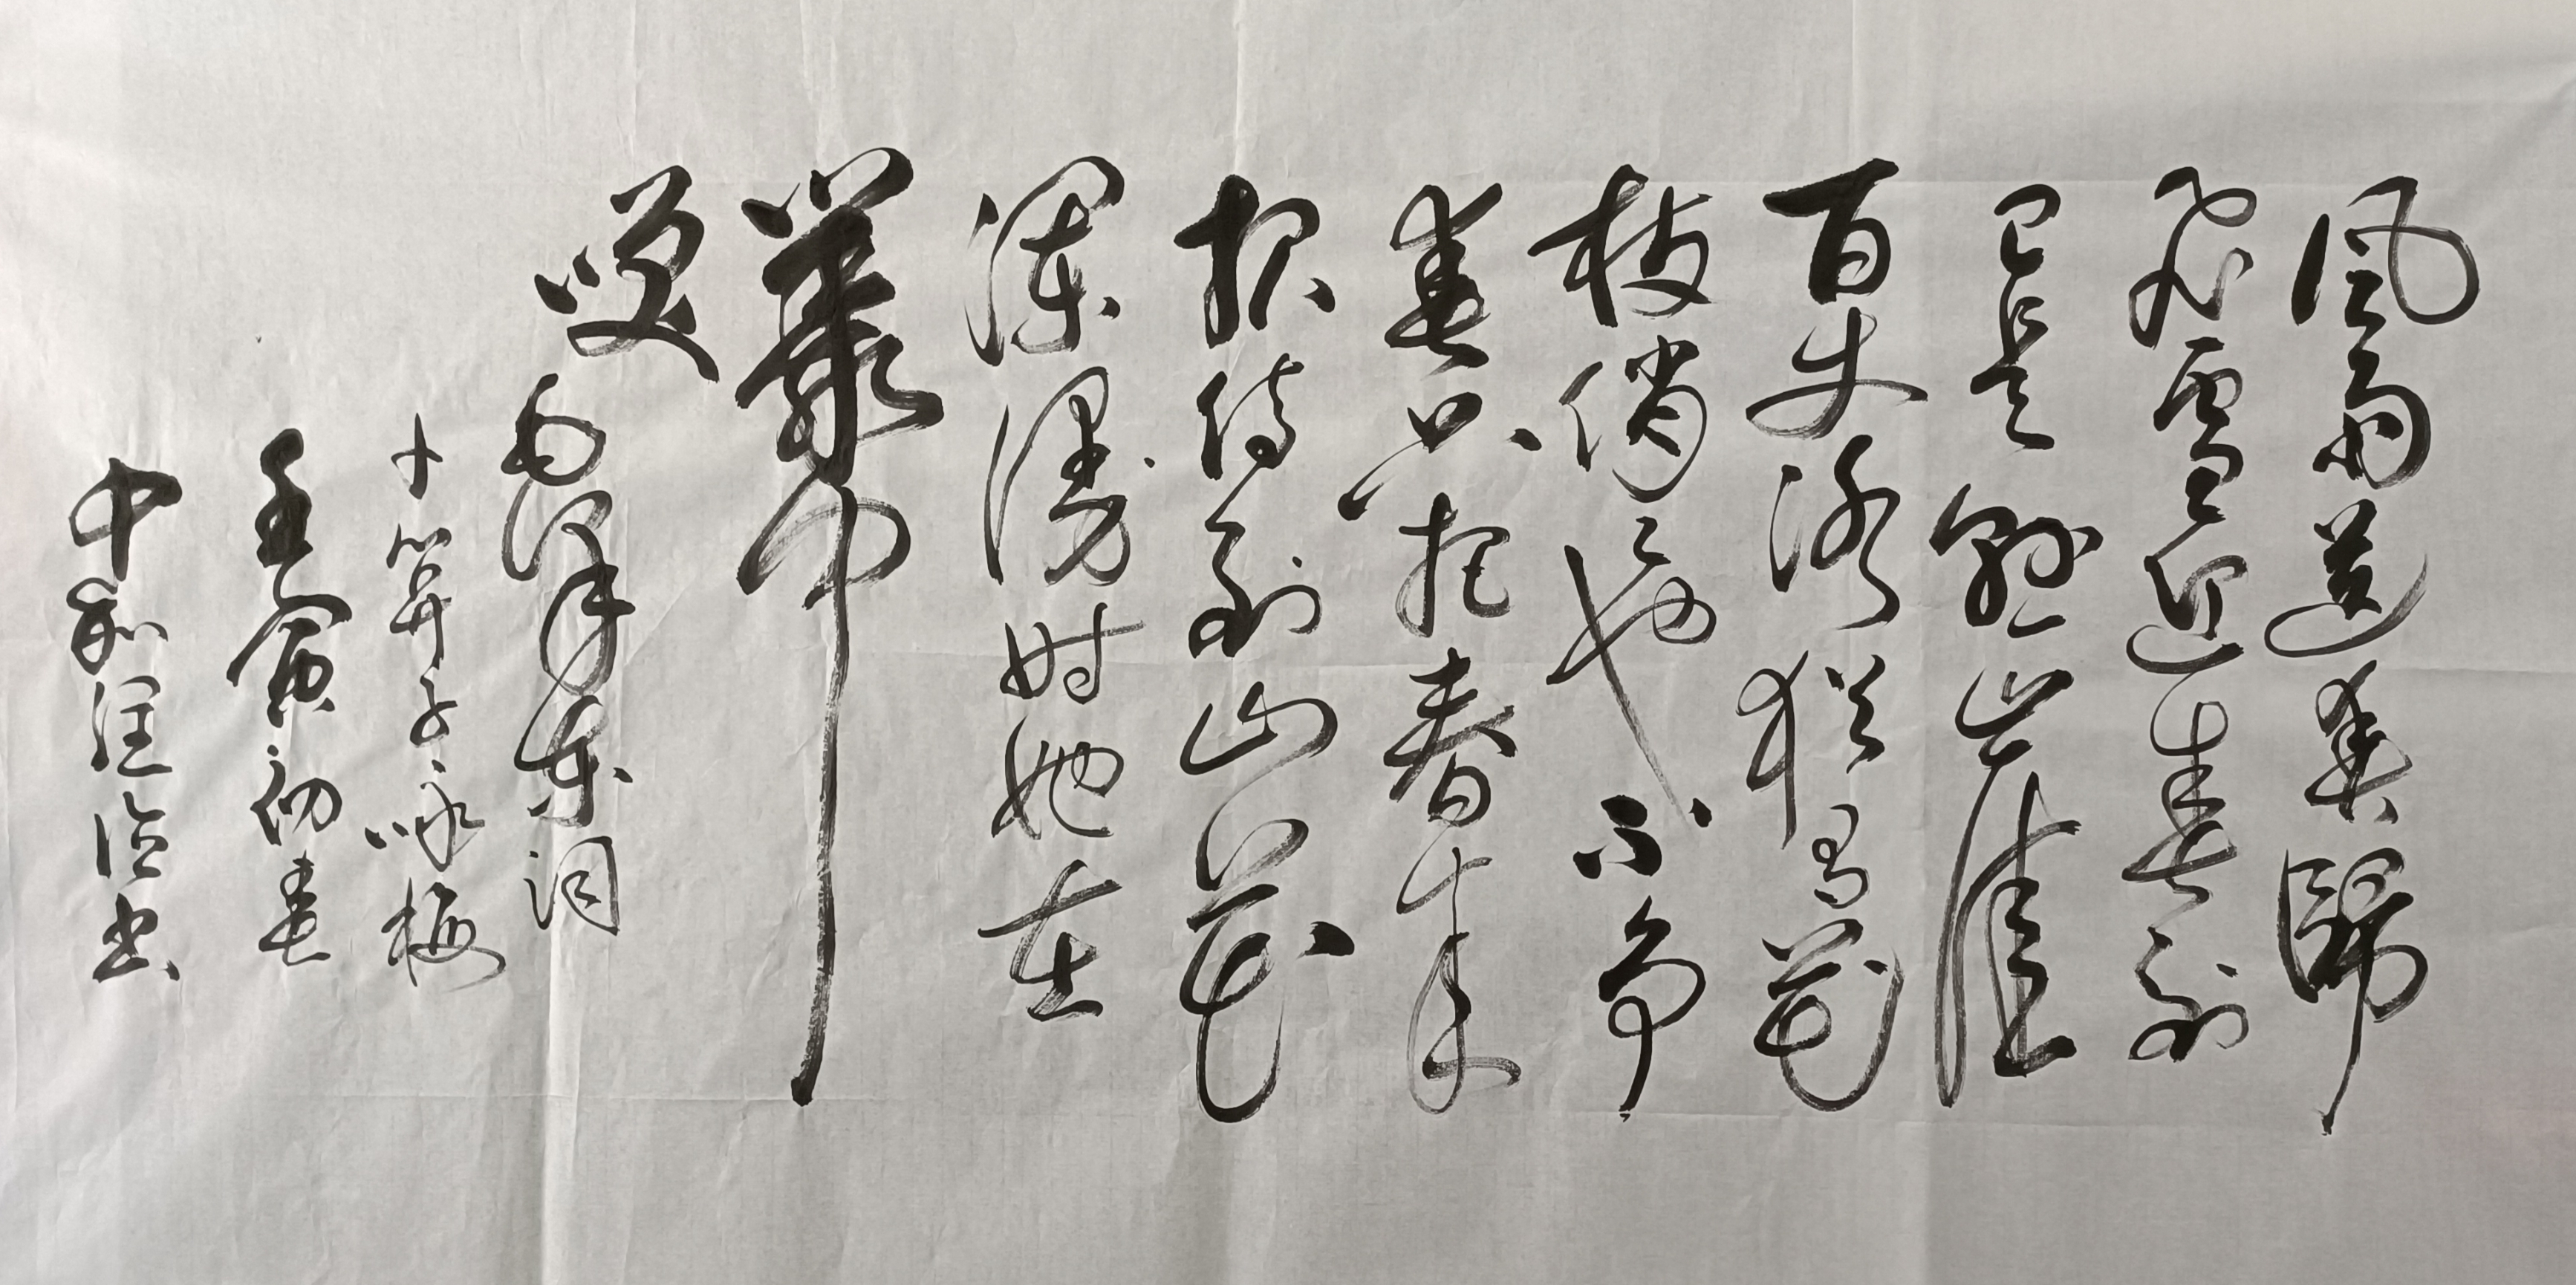 風雨送春歸
飛雪迎春到
已是懸崖
百丈冰猶有花
枝俏々也不爭
春只把春來
報待到山花
爛漫時她在
叢中
笑 毛澤東詞
卜算子咏梅
壬寅初春
中和 书